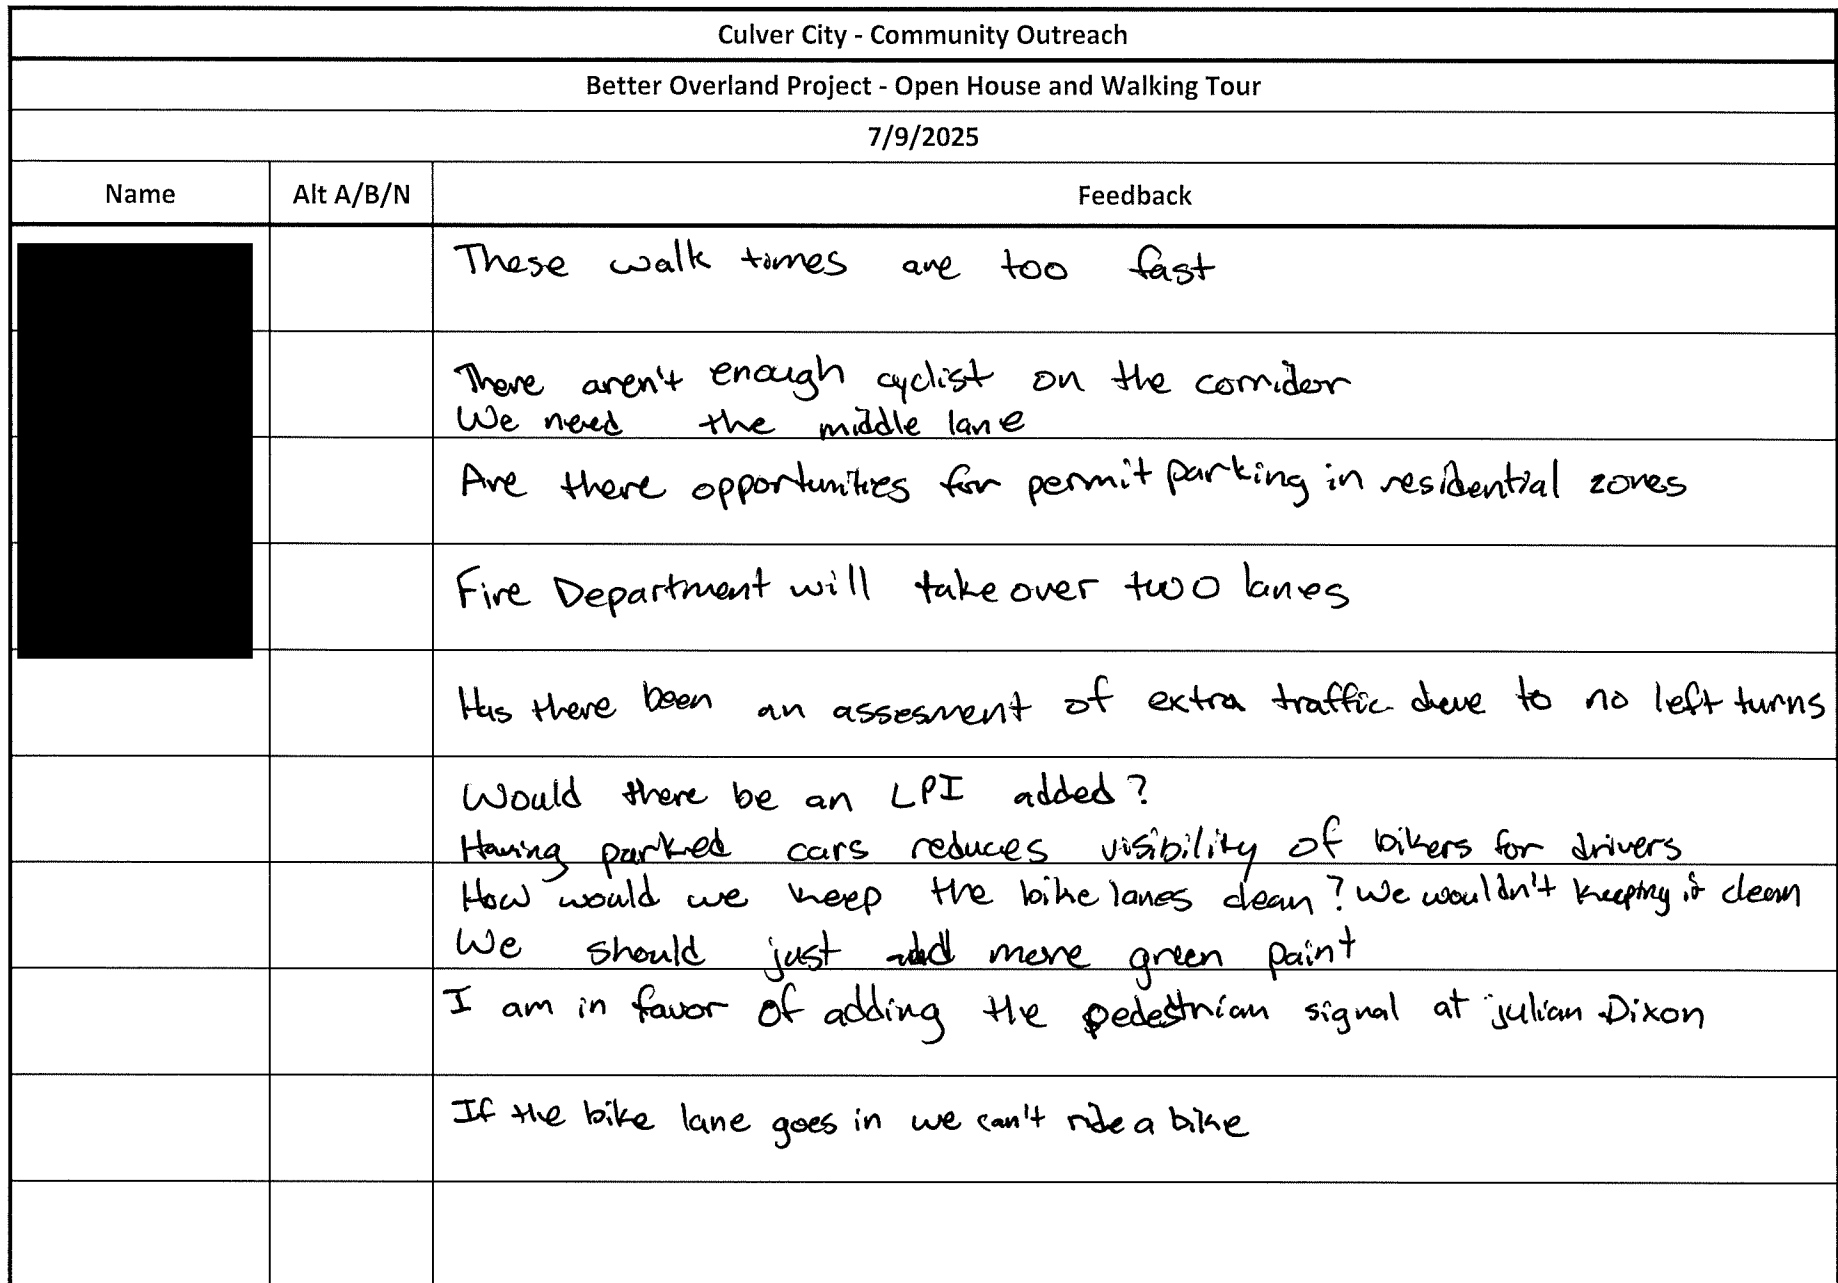 Culver City - Community Outreach
Better Overland Project - Open House and Walking Tour
7/9/2025
Name Alt A/B/N Feedback
These walk times are too fast
There aren't enough cyclist on the corridor
We need the middle lane
Are there opportunities for permit parking in residential zones
Fire Department will take over two lanes
Has there been an assesment of extra traffic due to no left turns
Would there be an LPI added?
Having parked cars reduces visibility of bikers for drivers
How would we keep the bike lanes clean? We wouldn't keeping it clean
We should just add more green paint
I am in favor of adding the pedestrian signal at julian Dixon
If the bike lane goes in we can't ride a bike